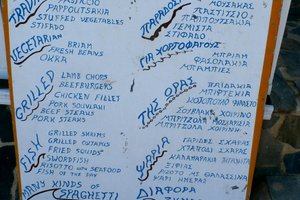 PASTICIO
PAPPOUTSAKIA
STUFFED VEGETABLES
STIFADO
VEGETARIAN
BRIAM
FRESH BEANS
OKRA
GRILLED
LAMB CHOPS
BEEFBURGERS
CHICKEN FILLET
PORK SOUVLAKI
BEEF STEAKS
PORK STEAK
FISH
GRILLED SHRIMS
GRILLED OCTAPUS
FRIED SQUIDS
SWORDFISH
RISOTTO WITH SEAFOOD
FISH OF THE DAY
MANY KINDS OF
SPAGHETTI
ΠΑΡΑΔΟΣΙ
ΜΟΥΣΑΚΑΣ
ΠΑΣΤΙΤΣΙΟ
ΠΑΠΟΥΤΣΑΚΙΑ
ΓΕΜΙΣΤΑ
ΣΤΙΦΑΔΟ
ΓΙΑ ΧΟΡΤΟΦΑΓΟΥΣ
ΜΠΡΙΑΜ
ΦΑΣΟΛΑΚΙΑ
ΜΠΑΜΙΕΣ
ΤΗΣ ΩΡΑΣ
ΠΑΪΔΑΚΙΑ
ΜΠΙΦΤΕΚΙΑ
ΚΟΤΟΠΟΥΛΟ ΦΙΛΕΤΟ
ΣΟΥΒΛΑΚΙ ΧΟΙΡΙΝΟ
ΜΠΡΙΖΟΛΑ ΜΟΣΧΑΡΙΣΙΑ
ΜΠΡΙΤΖΟΛΑ ΧΟΙΡΙΝΗ
ΨΑΡΙΑ
ΓΑΡΙΔΕΣ ΣΧΑΡΑΣ
ΧΤΑΠΟΔΙ ΣΧΑΡΑΣ
ΚΑΛΑΜΑΡΑΚΙΑ
ΞΙΦΙΑΣ
ΡΙΖΟΤΟ ΜΕ ΘΑΛΑΣΣΙΝΑ
ΨΑΡΙ ΗΜΕΡΑΣ
ΔΙΑΦΟΡΑ